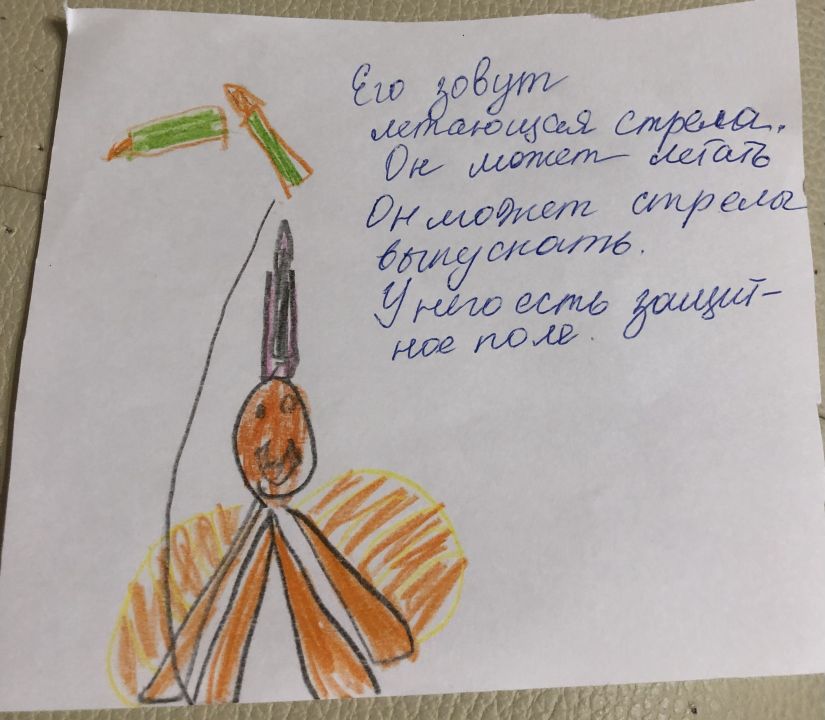 Его зовут
летающая стрела.
Он может летать
Он может стрелы
выпускать.
У него есть защит-
ное поле.